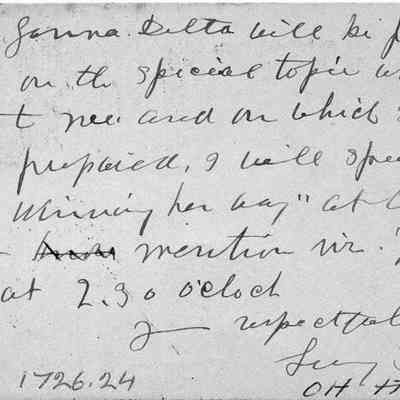 Gamma Delta will be
on the special topic
t you and on which
prepared. I will
Winning her way" at
mention in
at 2.30 o'clock
respectful
1726.24
OH